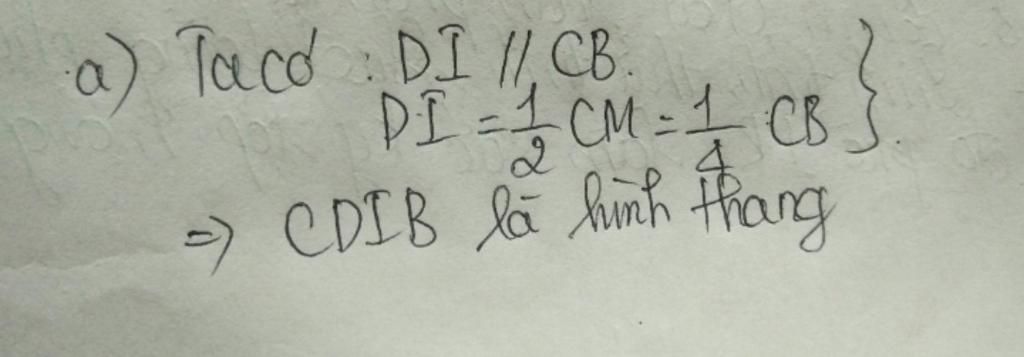 a) Ta có : DI // CB.
DI = 1/2 CM = 1/4 CB }.
=> CDIB là hình thang